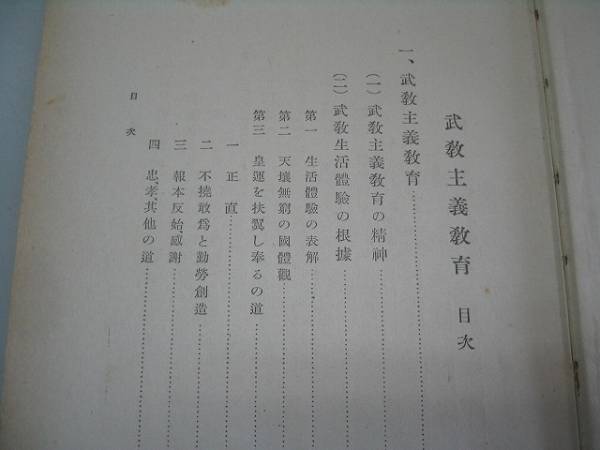 武敎主義敎育 目次
一、武敎主義敎育
(一) 武敎主義敎育の精神
(二) 武敎生活體驗の根據
第一 生活體驗の表解
第二 天壤無窮の國體觀
第三 皇運を扶翼し奉るの道
一 正直
二 不撓敢爲と勤勞創造
三 報本反始、感謝
四 忠、孝、其他の道
目次